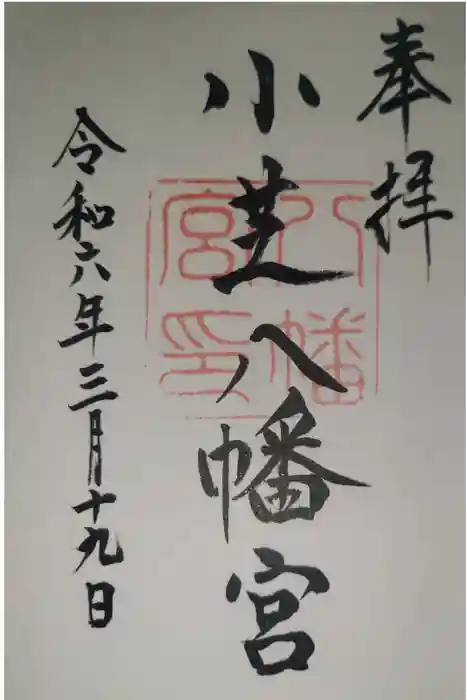 奉拝
小芝八幡宮
八幡
宮印
令和六年三月十九日